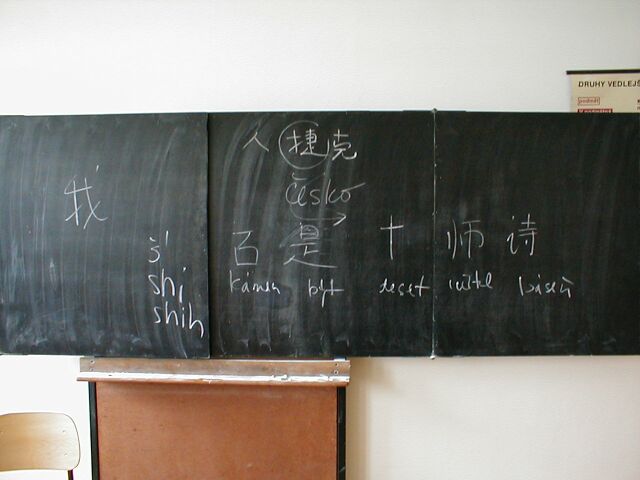 DRUHY VEDLEJŠ
podmět
人 捷克
česko
我
ši
shi
shih
石 是 十 师 诗
kámen být deset učitel báseň